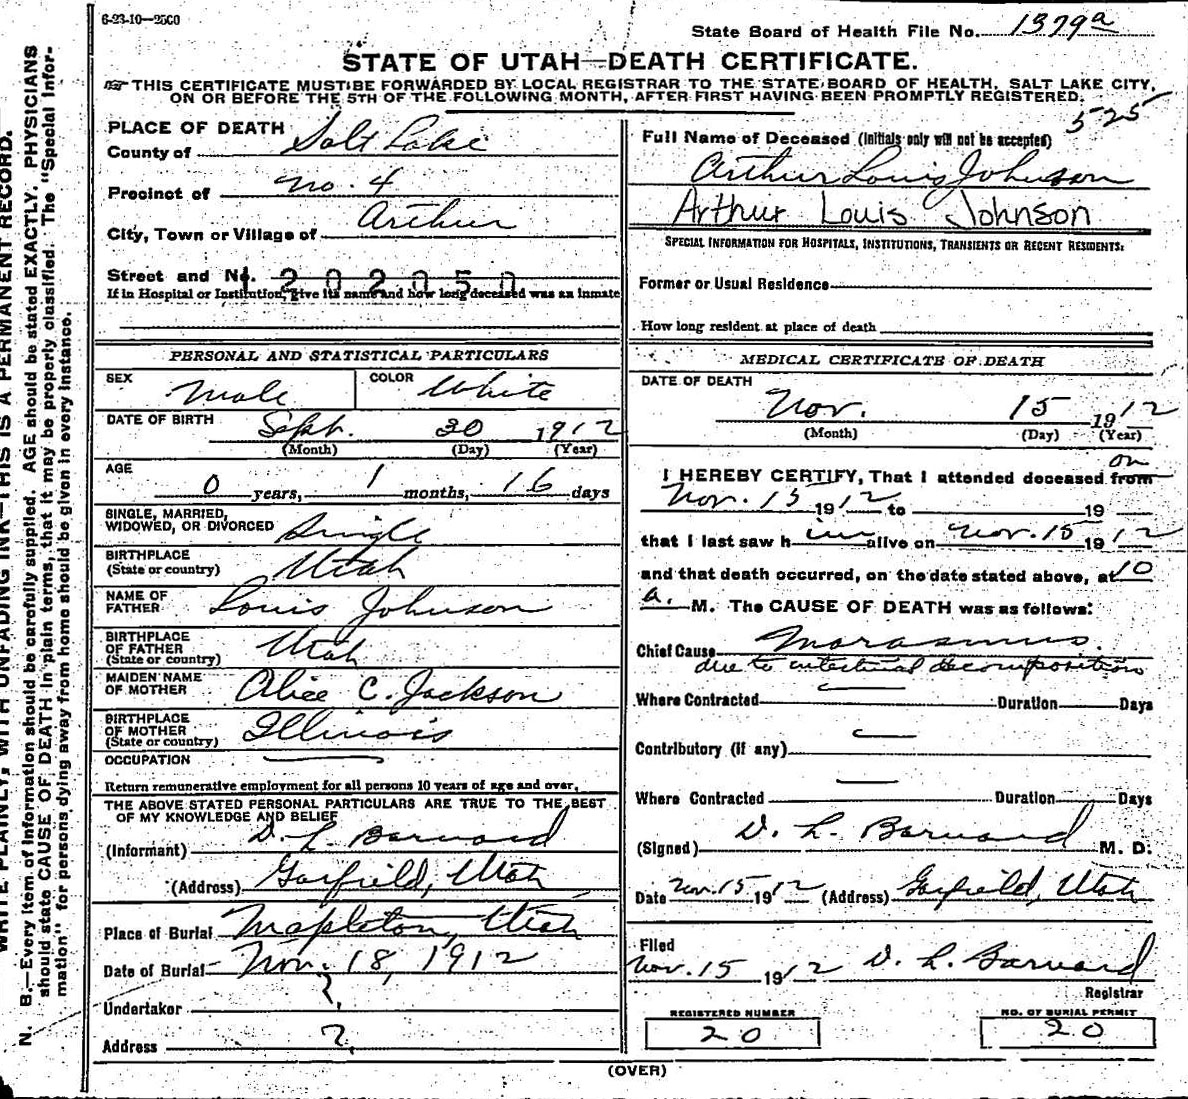 6-23-10—25C0
State Board of Health File No. 1379a
STATE OF UTAH—DEATH CERTIFICATE.
THIS CERTIFICATE MUST BE FORWARDED BY LOCAL REGISTRAR TO THE STATE BOARD OF HEALTH, SALT LAKE CITY,
ON OR BEFORE THE 5TH OF THE FOLLOWING MONTH, AFTER FIRST HAVING BEEN PROMPTLY REGISTERED.
525
PLACE OF DEATH
County of Salt Lake
Precinct of no. 4
City, Town or Village of Arthur
Street and No.
1202050
If in Hospital or Institution, give its name and how long deceased was an inmate
PERSONAL AND STATISTICAL PARTICULARS
SEX Male COLOR White
DATE OF BIRTH Sept. 30 1912
(Month) (Day) (Year)
AGE
0 years, 1 months, 16 days
SINGLE, MARRIED,
WIDOWED, OR DIVORCED Single
BIRTHPLACE
(State or country) Utah
NAME OF
FATHER Louis Johnson
BIRTHPLACE
OF FATHER
(State or country) Utah
MAIDEN NAME
OF MOTHER Alice C. Jackson
BIRTHPLACE
OF MOTHER
(State or country) Illinois
OCCUPATION
Return remunerative employment for all persons 10 years of age and over.
THE ABOVE STATED PERSONAL PARTICULARS ARE TRUE TO THE BEST
OF MY KNOWLEDGE AND BELIEF
(Informant) D. L. Barnard
(Address) Garfield, Utah
Place of Burial Mapleton, Utah
Date of Burial Nov. 18, 1912
Undertaker ?
Address ?
Full Name of Deceased (Initials only will not be accepted)
Arthur Louis Johnson
Arthur Louis Johnson
SPECIAL INFORMATION FOR HOSPITALS, INSTITUTIONS, TRANSIENTS OR RECENT RESIDENTS:
Former or Usual Residence
How long resident at place of death
MEDICAL CERTIFICATE OF DEATH
DATE OF DEATH
Nov. 15 1912
(Month) (Day) (Year)
on
I HEREBY CERTIFY, That I attended deceased from
Nov. 15 1912 to 19
that I last saw him alive on Nov. 15 1912
and that death occurred, on the date stated above, at 10
a. M. The CAUSE OF DEATH was as follows:
Chief Cause Marasmus
due to intestinal decomposition
Where Contracted Duration Days
Contributory (if any)
Where Contracted Duration Days
(Signed) D. L. Barnard M. D.
Date Nov. 15 1912 (Address) Garfield, Utah
Filed
Nov. 15 1912 D. L. Barnard
Registrar
REGISTERED NUMBER
20
NO. OF BURIAL PERMIT
20
(OVER)
WRITE PLAINLY, WITH UNFADING INK—THIS IS A PERMANENT RECORD.
N. B.—Every item of information should be carefully supplied. AGE should be stated EXACTLY. PHYSICIANS
should state CAUSE OF DEATH in plain terms, that it may be properly classified. The "Special Infor-
mation" for persons dying away from home should be given in every instance.